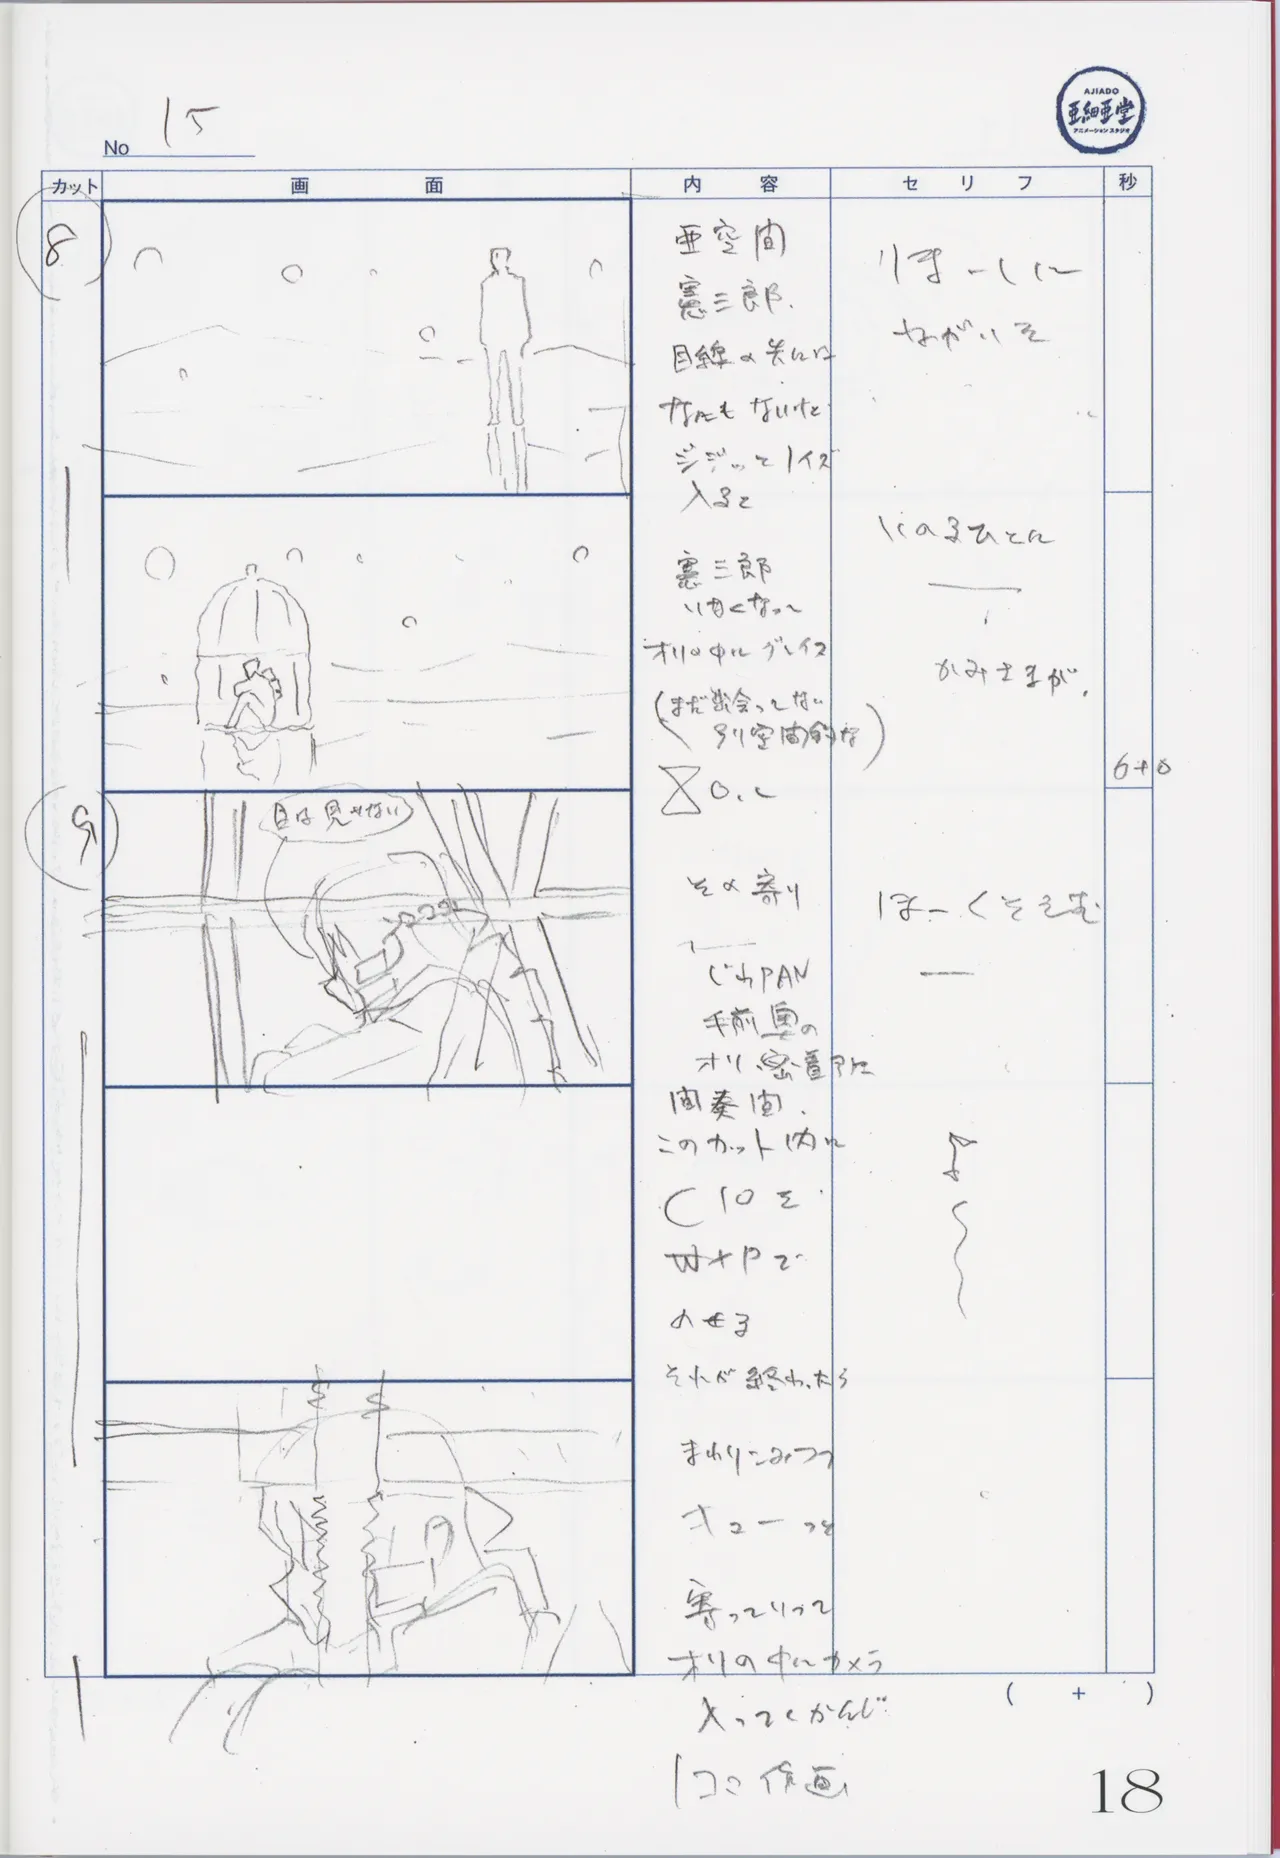 No 15
AJIADO
亜細亜堂
アニメーションスタジオ
カット 画面 内容 セリフ 秒
8
亜空間
憲三郎、
目線の先には
なにもないけど
ジジッとノイズ
入ると
ほーしに
ねがいを
憲三郎
いなくなって
オリの中にブレイズ
(まだ出会ってない
別空間的な)
いのるひとに
かみさまが、
6+0
9
目は見せない
その寄り
じわPAN
手前奥の
オリ、密着
ほーくそえむ
間奏間、
このカット内に
C10を
W×Pで
のせる
それが終わったら
まわりこみつつ
キューっと
寄っていって
オリの中にカメラ
入ってくかんじ
1コマ作画
( + )
18